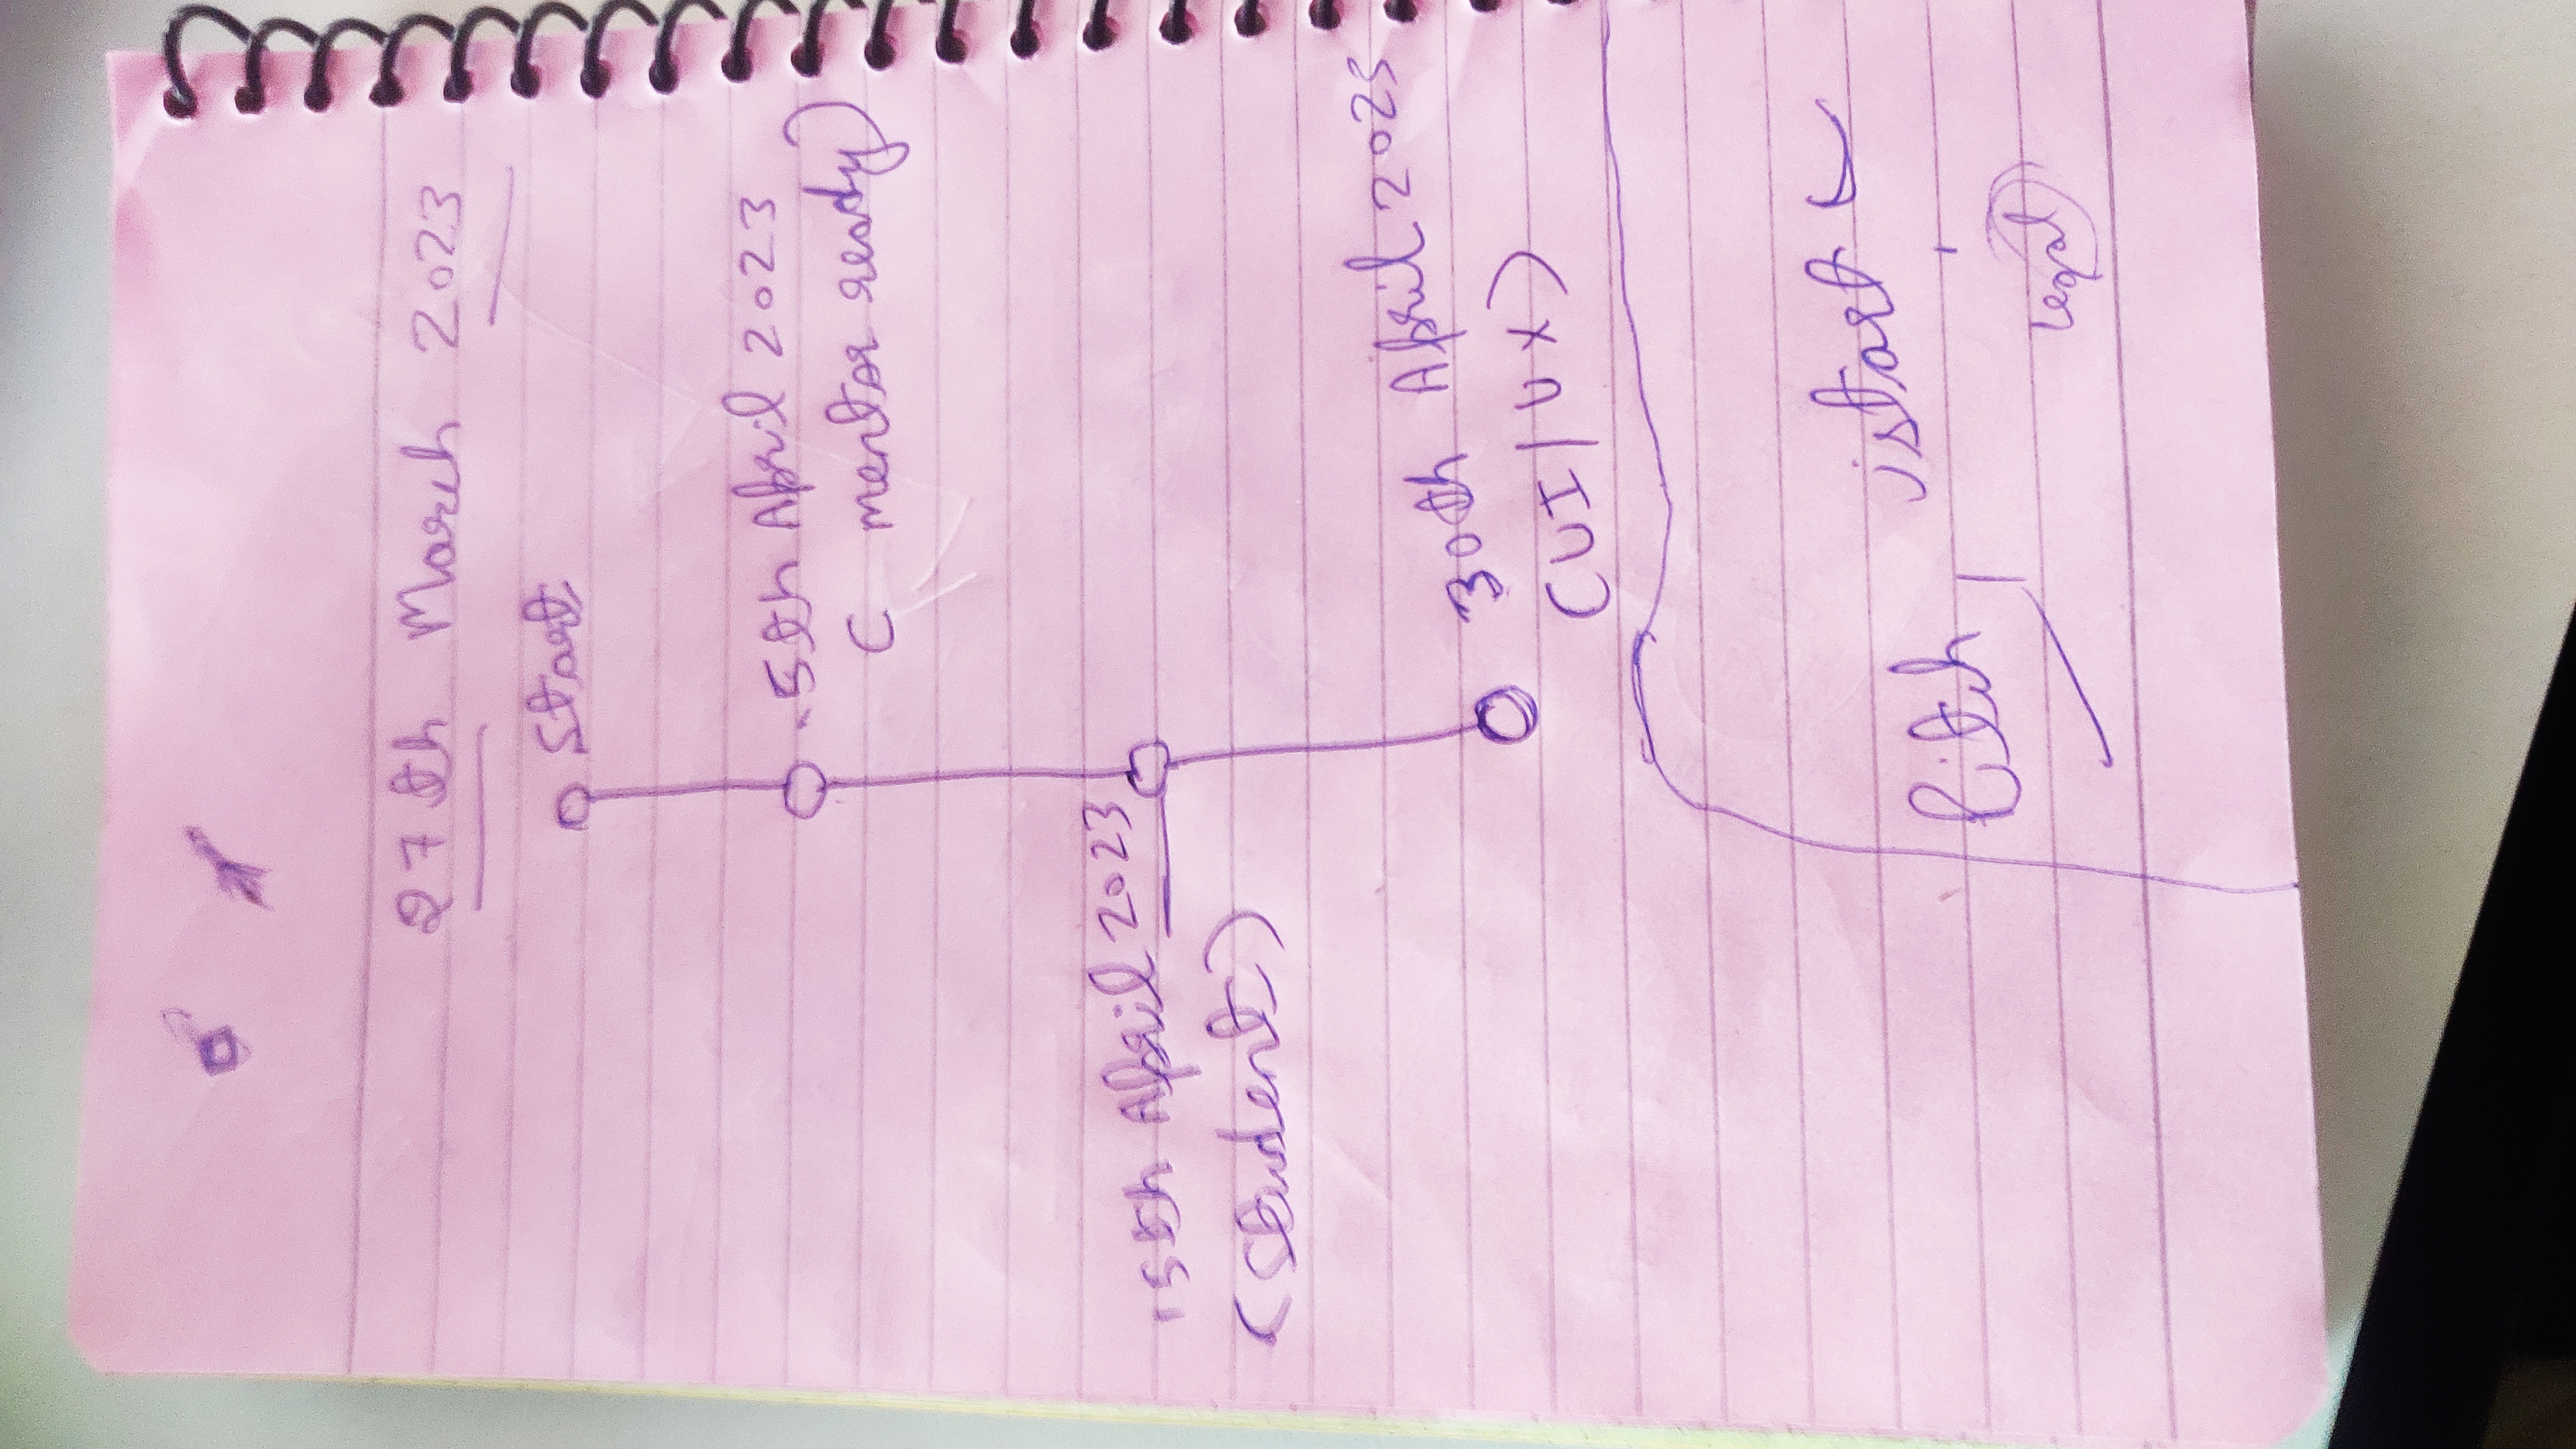 27th March 2023
Start
5th April 2023
( mentor ready)
15th April 2023
(Student)
30th April 2023
(UI/UX)
istart
Pitch,
Legal